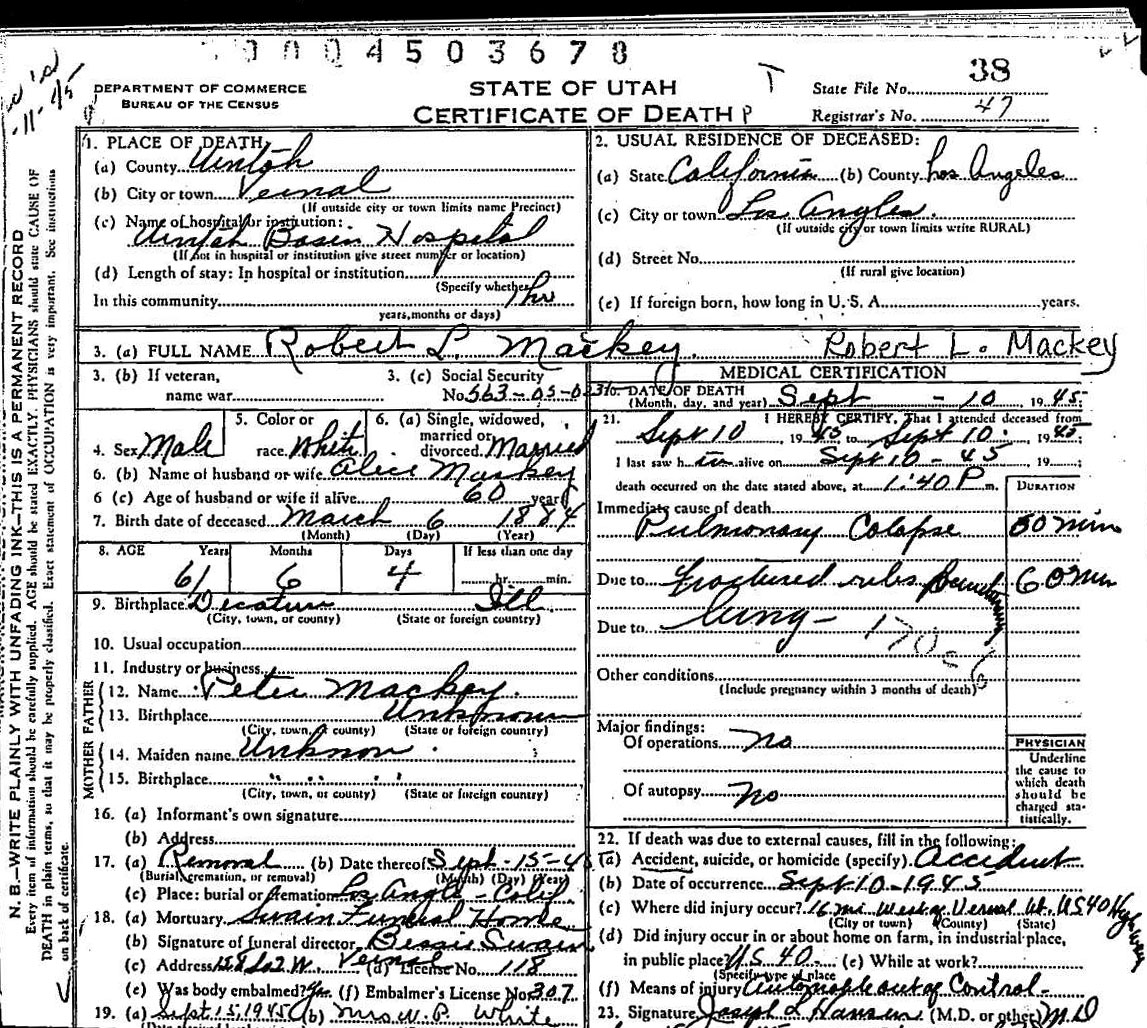 0004503678
38
DEPARTMENT OF COMMERCE
BUREAU OF THE CENSUS
STATE OF UTAH
CERTIFICATE OF DEATH
State File No.
Registrar's No. 47
N. B.—WRITE PLAINLY WITH UNFADING INK—THIS IS A PERMANENT RECORD
Every item of information should be carefully supplied. AGE should be stated EXACTLY. PHYSICIANS should state CAUSE OF
DEATH in plain terms, so that it may be properly classified. Exact statement of OCCUPATION is very important. See instructions
on back of certificate.
1. PLACE OF DEATH
(a) County Uintah
(b) City or town Vernal
(If outside city or town limits name Precinct)
(c) Name of hospital or institution:
Uintah Basin Hospital
(If not in hospital or institution give street number or location)
(d) Length of stay: In hospital or institution
(Specify whether
In this community 1 hr
years, months or days)
2. USUAL RESIDENCE OF DECEASED:
(a) State California (b) County Los Angeles
(c) City or town Los Angles.
(If outside city or town limits write RURAL)
(d) Street No.
(If rural give location)
(e) If foreign born, how long in U. S. A. years.
3. (a) FULL NAME Robert L. Mackey. Robert L. Mackey
3. (b) If veteran,
name war
3. (c) Social Security
No. 563-05-
4. Sex Male
5. Color or
race. White
6. (a) Single, widowed,
married or
divorced. Married
6. (b) Name of husband or wife Alice Mackey
6 (c) Age of husband or wife if alive 60 years
7. Birth date of deceased March 6 1884
(Month) (Day) (Year)
8. AGE Years Months Days If less than one day
61 6 4 hr. min.
9. Birthplace Decatur Ill
(City, town, or county) (State or foreign country)
10. Usual occupation
11. Industry or business
FATHER
12. Name Peter Mackey.
13. Birthplace Unknown
(City, town, or county) (State or foreign country)
MOTHER
14. Maiden name Unknow
15. Birthplace " " "
(City, town, or county) (State or foreign country)
16. (a) Informant's own signature
(b) Address
17. (a) Removal (b) Date thereof Sept-15-45
(Burial, cremation, or removal) (Month) (Day) (Year)
(c) Place: burial or cremation Los Angle - Calif
18. (a) Mortuary Swain Funeral Home
(b) Signature of funeral director Bessie Swain
(c) Address Vernal (d) License No. 118
(e) Was body embalmed? Yes (f) Embalmer's License No. 307
19. (a) Sept 15, 1945 (b) Mrs W. P. White
MEDICAL CERTIFICATION
20. DATE OF DEATH
(Month, day, and year) Sept - 10 1945
21. I HEREBY CERTIFY, That I attended deceased from
Sept 10 1945 to Sept 10 1945
I last saw him alive on Sept 10-45 19
death occurred on the date stated above, at 1:40 P m.
DURATION
Immediate cause of death
Pulmonary Colapse 50 min
Due to Fractured ribs 60 min
Due to lung -
Other conditions
(Include pregnancy within 3 months of death)
Major findings:
Of operations no
Of autopsy no
PHYSICIAN
Underline
the cause to
which death
should be
charged sta-
tistically.
22. If death was due to external causes, fill in the following:
(a) Accident, suicide, or homicide (specify) Accident
(b) Date of occurrence Sept 10-1945
(c) Where did injury occur? 16 mi West of Vernal Ut. US 40 Hy
(City or town) (County) (State)
(d) Did injury occur in or about home on farm, in industrial place,
in public place? US 40 (e) While at work?
(Specify type of place
(f) Means of injury Automobile out of Control -
23. Signature Joseph L Hansen (M.D. or other) M.D